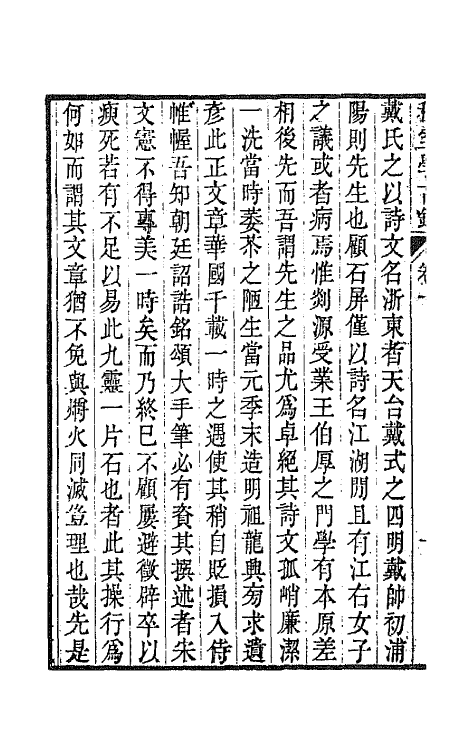 戴氏之以詩文名浙東者天台戴式之四明戴師初浦
陽則先生也顧石屏僅以詩名江湖間且有江右女子
之議或者病焉惟剡源受業王伯厚之門學有本原差
相後先而吾謂先生之品尤為卓絕其詩文孤峭廉潔
一洗當時萎苶之陋生當元季末造明祖龍興旁求遺
彥此正文章華國千載一時之遇使其稍自貶損入侍
帷幄吾知朝廷詔誥銘頌大手筆必有資其撰述者朱
文憲不得專美一時矣而乃終巳不顧屢避徵辟卒以
瘐死若有不足以易此九靈一片石也者此其操行為
何如而謂其文章猶不免與爝火同滅豈理也哉先是